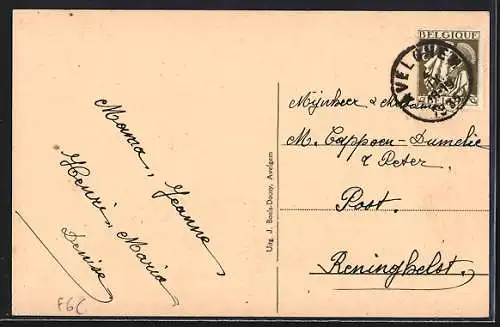 BELGIQUE
AVELGEM
1935
Mama, Jeanne
Henri, Maria
Denise
F6C
Uitg. J. Beels-Doozy, Avelgem
Mijnheer & Madame
M. Cappoen-Dumelie
& Peter
Post.
Reninghelst.